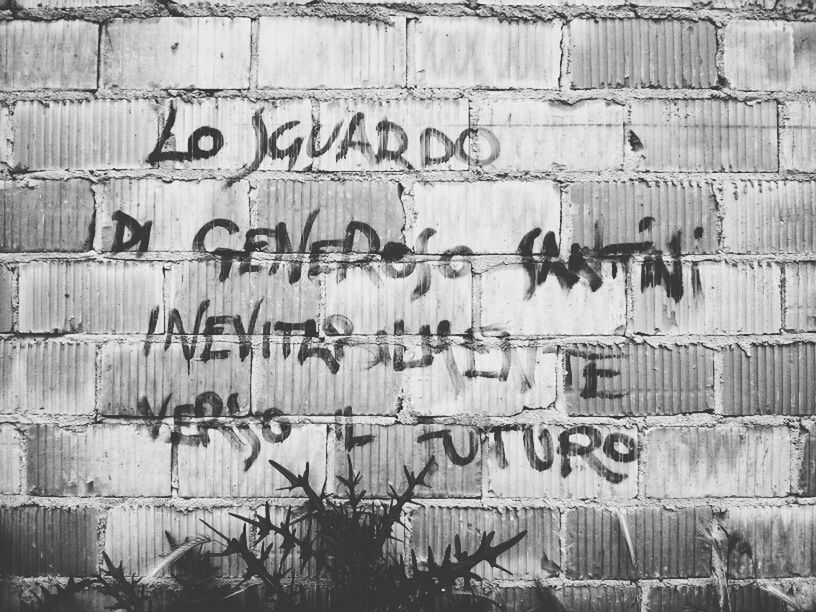 LO SGUARDO
DI GENEROSO SANTINI
INEVITABILMENTE
VERSO IL FUTURO